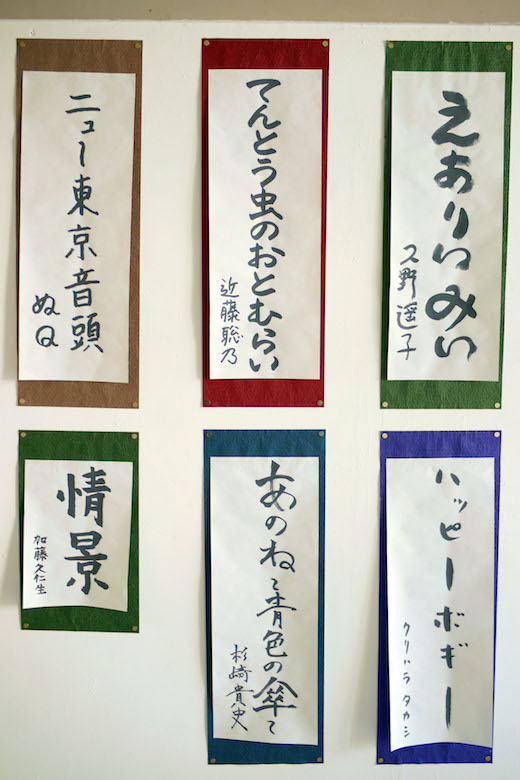 ニュー東京音頭
ぬQ
てんとう虫のおとむらい
近藤聡乃
えありいみい
久野遥子
情景
加藤久仁生
あのねと青色の傘と
杉崎貴史
ハッピーボギー
クリハラタカシ